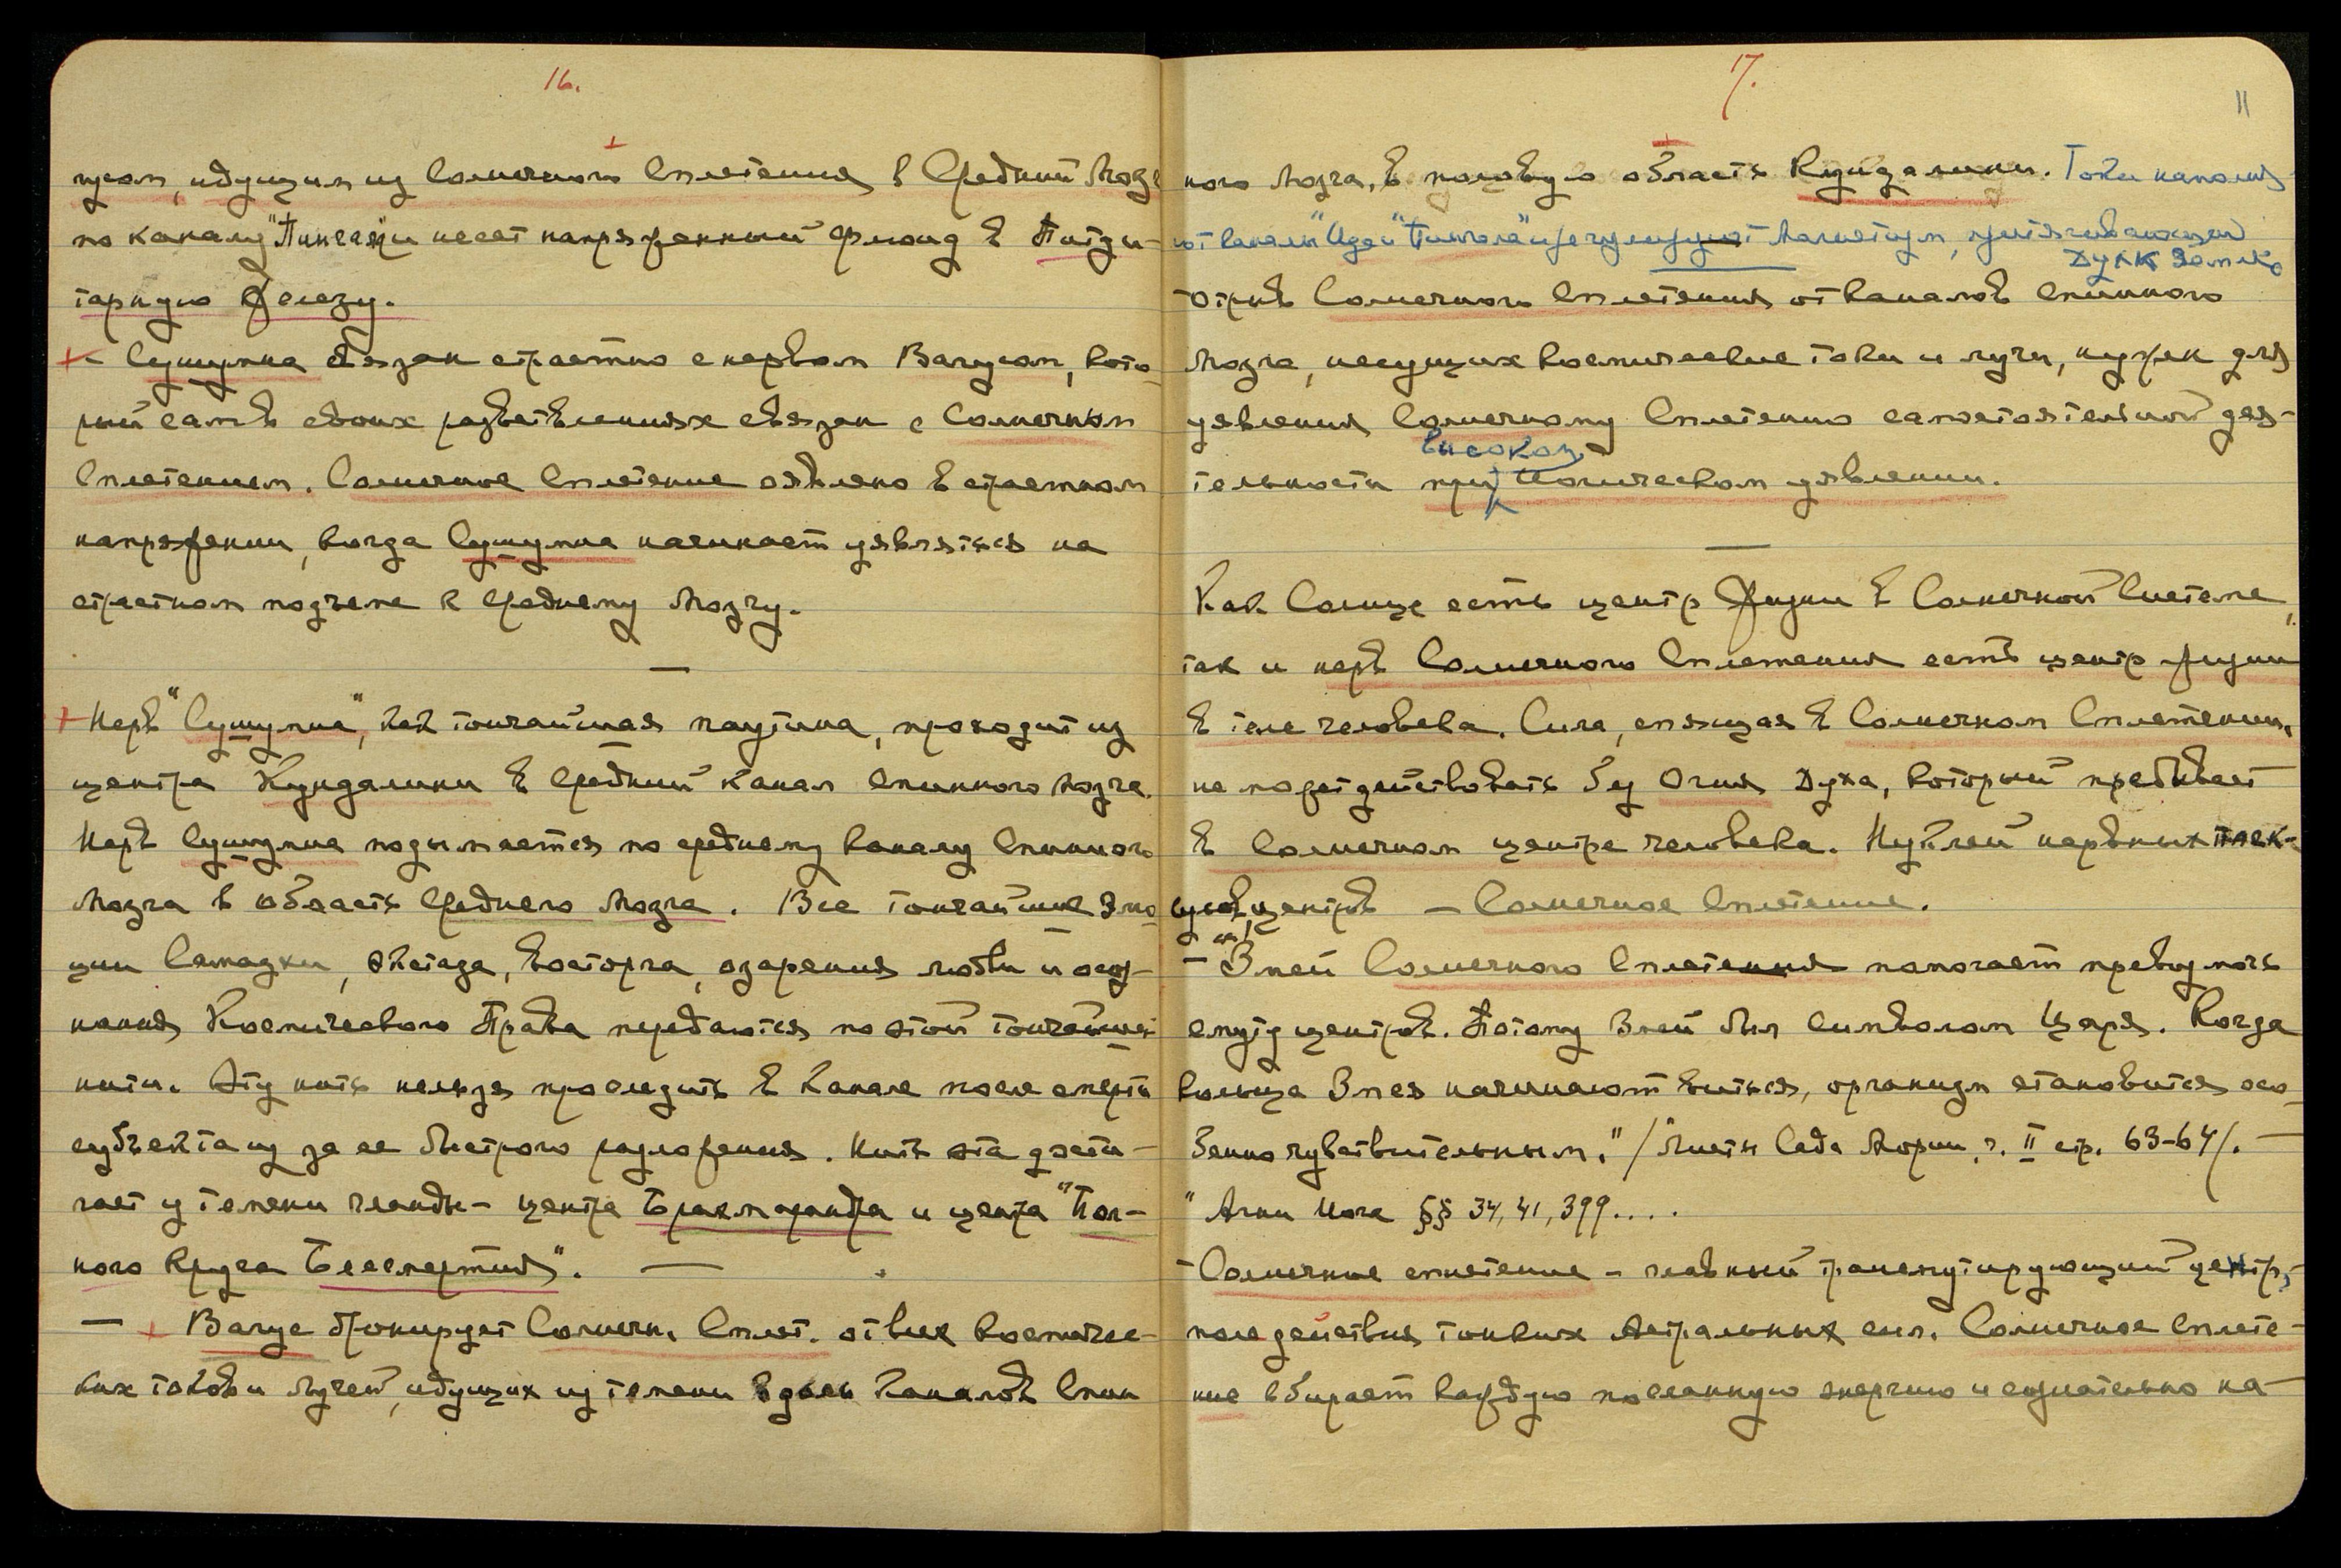 16.
гусом, идущим из Солнечного Сплетения в Средний Мозг
по каналу "Пингала" и несет напряженный флюид в Питуи-
тарную железу.
– Сушумна связан страстно с нервом Вагусом, кото-
рый сам в своих разветвлениях связан с Солнечным
Сплетением. Солнечное Сплетение явлено в страстном
напряжении, когда Сушумна начинает уявляться на
страстном подъеме к Среднему Мозгу.
Нерв "Сушумна", как тончайшая паутина, проходит из
центра Кундалини в Средний канал Спинного Мозга.
Нерв Сушумна подымается по среднему каналу Спинного
Мозга в область Среднего Мозга. Все тончайшие Эмо-
ции Самадхи, экстаза, восторга, озарения любви и осоз-
нания Космического Права передаются по этой тончайшей
нити. Эту нить нельзя проследить в Канале после смерти
субъекта из за ее быстрого разложения. Нить эта дости-
гает у темени гланды – центра Брахмарандра и центра "Пол-
ного Круга Бессмертия". —
– Вагус бронирует Солнечн. Сплет. от всех космичес-
ких токов и лучей, идущих из темени вдоль Каналов Спин
17.
11
ного Мозга, в половую область Кундалини. Токи наполня-
ют каналы "Ида" и "Пингала" и регулируют Магнетизм, притягивающий
Дух к Земле
отрыв Солнечного Сплетения от каналов Спинного
Мозга, несущих космические токи и лучи, нужен для
уявления Солнечному Сплетению самостоятельной дея-
высоком
тельности при Йогическом уявлении.
Как Солнце есть центр Жизни в Солнечной Системе,
так и нерв Солнечного Сплетения есть центр жизни
в теле человека. Сила, спящая в Солнечном Сплетении,
не может действовать без Огня Духа, который пребывает
в Солнечном центре человека. Нуклей нервных плек-
сусов, центров – Солнечное Сплетение.
– "Змей Солнечного Сплетения помогает превозмочь
смуту центров. Потому Змей был символом Царя. Когда
кольца Змея начинают виться, организм становится осо-
бенно чувствительным." /"Листы Сада Мории", ч. II стр. 63-64/. —
" Агни Йога §§ 34, 41, 399....
– Солнечное сплетение – главный трансмутирующий центр,–
поле действия тонких Астральных сил. Солнечное Сплете-
ние вбирает каждую посланную энергию и сознательно на-